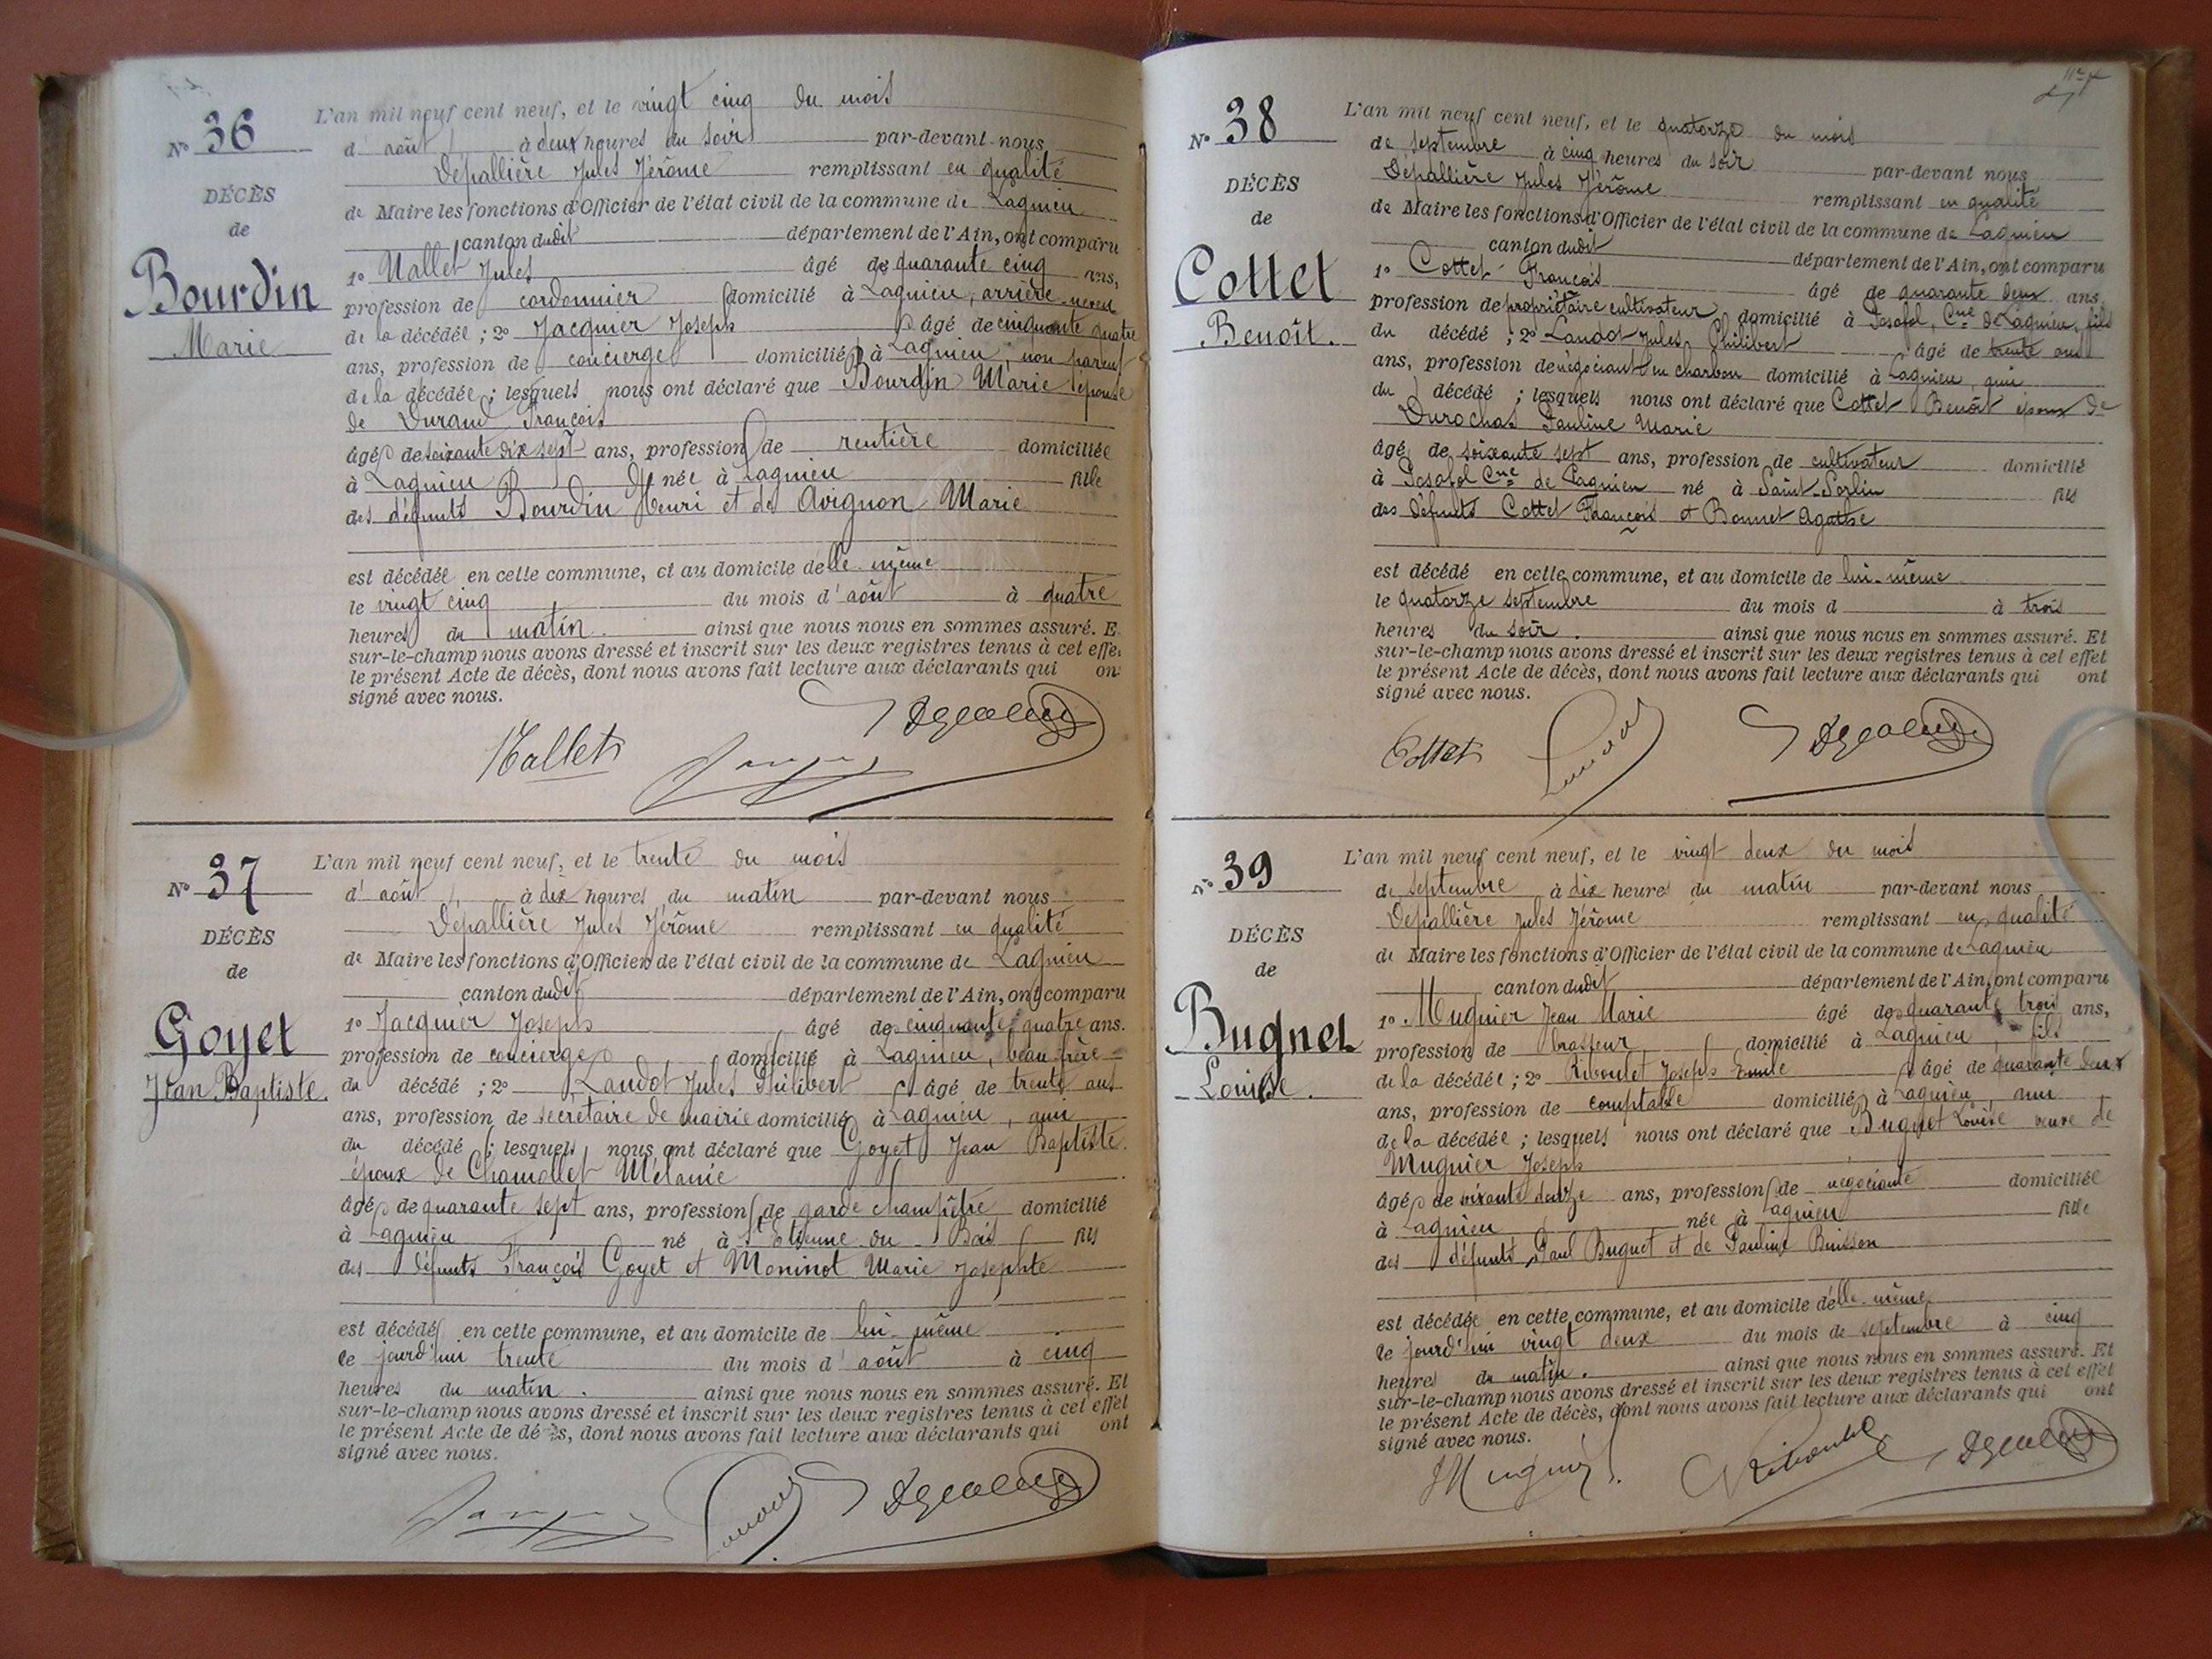 N° 36
DÉCÈS
de
Bourdin
Marie
L'an mil neuf cent neuf, et le vingt cinq du mois
d' août à deux heures du soir par-devant nous
Dépallière Jules Jérôme remplissant en qualité
de Maire les fonctions d'Officier de l'état civil de la commune de Lagnieu
canton dudit département de l'Ain, ont comparu
1° Nallet Jules âgé de quarante cinq ans,
profession de cordonnier domicilié à Lagnieu, arrière neveu
de la décédée ; 2° Jacquier Joseph âgé de cinquante quatre
ans, profession de concierge domicilié à Lagnieu, non parent
de la décédée ; lesquels nous ont déclaré que Bourdin Marie épouse
de Durand François
âgée de soixante dix sept ans, profession de rentière domiciliée
à Lagnieu née à Lagnieu fille
des défunts Bourdin Henri et de Avignon Marie
est décédée en cette commune, et au domicile d'elle même
le vingt cinq du mois d' août à quatre
heures du matin. ainsi que nous nous en sommes assuré. E
sur-le-champ nous avons dressé et inscrit sur les deux registres tenus à cet effe
le présent Acte de décès, dont nous avons fait lecture aux déclarants qui on
signé avec nous.
Nallet
N° 37
DÉCÈS
de
Goyet
Jean Baptiste.
L'an mil neuf cent neuf, et le trente du mois
d' août à dix heures du matin par-devant nous
Dépallière Jules Jérôme remplissant en qualité
de Maire les fonctions d'Officier de l'état civil de la commune de Lagnieu
canton dudit département de l'Ain, ont comparu
1° Jacquier Joseph âgé de cinquante quatre ans.
profession de concierge domicilié à Lagnieu, beau frère
du décédé ; 2° Landot Jules Philibert âgé de trente ans
ans, profession de secrétaire de mairie domicilié à Lagnieu, ami
du décédé ; lesquels nous ont déclaré que Goyet Jean Baptiste.
époux de Chamollet Mélanie
âgé de quarante sept ans, profession de garde champêtre domicilié
à Lagnieu né à St Etienne du Bois fils
des défunts François Goyet et Moninot Marie Josephte
est décédé en cette commune, et au domicile de lui même
le jourd'hui trente du mois d' août à cinq
heures du matin. ainsi que nous nous en sommes assuré. Et
sur-le-champ nous avons dressé et inscrit sur les deux registres tenus à cet effet
le présent Acte de décès, dont nous avons fait lecture aux déclarants qui ont
signé avec nous.
Landot
N° 38
DÉCÈS
de
Cottet
Benoît.
L'an mil neuf cent neuf, et le quatorze du mois
de septembre à cinq heures du soir par-devant nous
Dépallière Jules Jérôme remplissant en qualité
de Maire les fonctions d'Officier de l'état civil de la commune de Lagnieu
canton dudit département de l'Ain, ont comparu
1° Cottet François âgé de quarante deux ans
profession de propriétaire cultivateur domicilié à Posafol, Cne de Lagnieu, fils
du décédé ; 2° Landot Jules Philibert âgé de trente ans
ans, profession de négociant en charbon domicilié à Lagnieu, ami
du décédé ; lesquels nous ont déclaré que Cottet Benoît époux de
Durochat Pauline Marie
âgé de soixante sept ans, profession de cultivateur domicilié
à Posafol Cne de Lagnieu né à Saint-Sorlin fils
des défunts Cottet François et Bonnet Agathe
est décédé en cette commune, et au domicile de lui-même
le quatorze septembre du mois d à trois
heures du soir. ainsi que nous nous en sommes assuré. Et
sur-le-champ nous avons dressé et inscrit sur les deux registres tenus à cet effet
le présent Acte de décès, dont nous avons fait lecture aux déclarants qui ont
signé avec nous.
Cottet Landot
N° 39
DÉCÈS
de
Bugnet
Louise.
L'an mil neuf cent neuf, et le vingt deux du mois
de septembre à dix heures du matin par-devant nous
Dépallière Jules Jérôme remplissant en qualité
de Maire les fonctions d'Officier de l'état civil de la commune de Lagnieu
canton dudit département de l'Ain, ont comparu
1° Mugnier Jean Marie âgé de quarante trois ans,
profession de brasseur domicilié à Lagnieu, fils
de la décédée ; 2° Riboulet Joseph Emile âgé de quarante deux
ans, profession de comptable domicilié à Lagnieu, ami
de la décédée ; lesquels nous ont déclaré que Bugnet Louise veuve de
Mugnier Joseph
âgée de soixante douze ans, profession de négociante domiciliée
à Lagnieu née à Lagnieu fille
des défunts Paul Bugnet et de Pauline Buisson
est décédée en cette commune, et au domicile d'elle-même
le jourd'hui vingt deux du mois de septembre à cinq
heures du matin. ainsi que nous nous en sommes assuré. Et
sur-le-champ nous avons dressé et inscrit sur les deux registres tenus à cet effet
le présent Acte de décès, dont nous avons fait lecture aux déclarants qui ont
signé avec nous.
Mugnier Riboulet